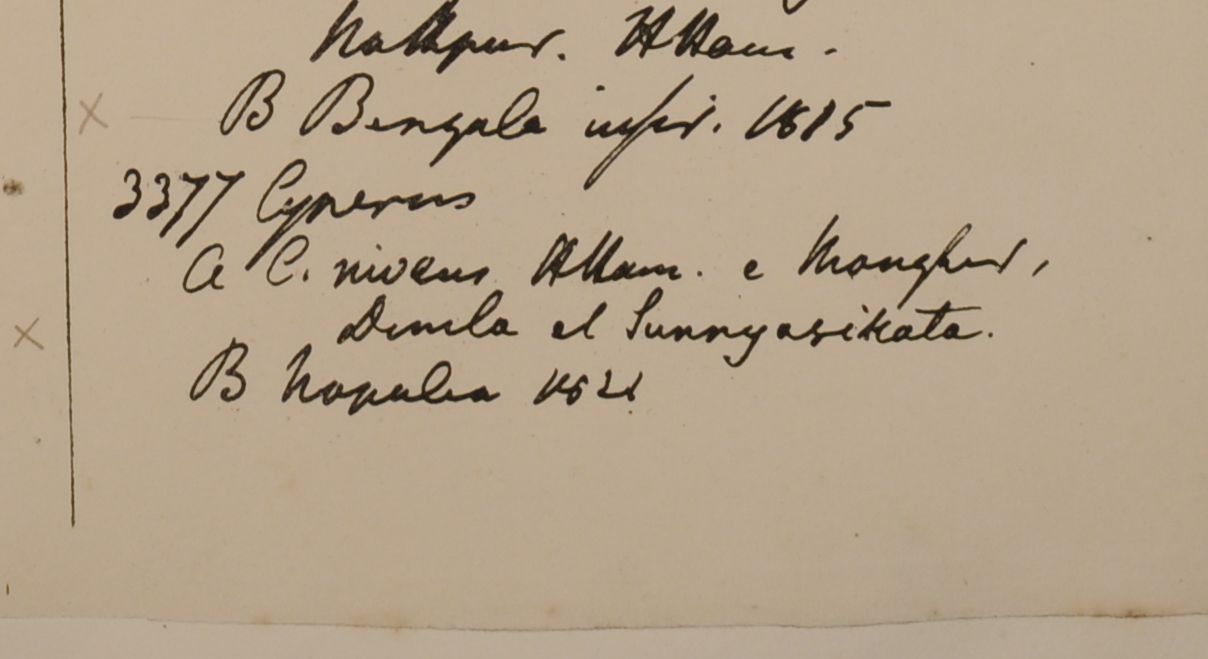 Nathpur. H Ham.
B Bengala infer. 1815
3377 Cyperus
A C. niveus H Ham. e Monghur,
Dinila et Sunnyasikata.
B Napalia 1821